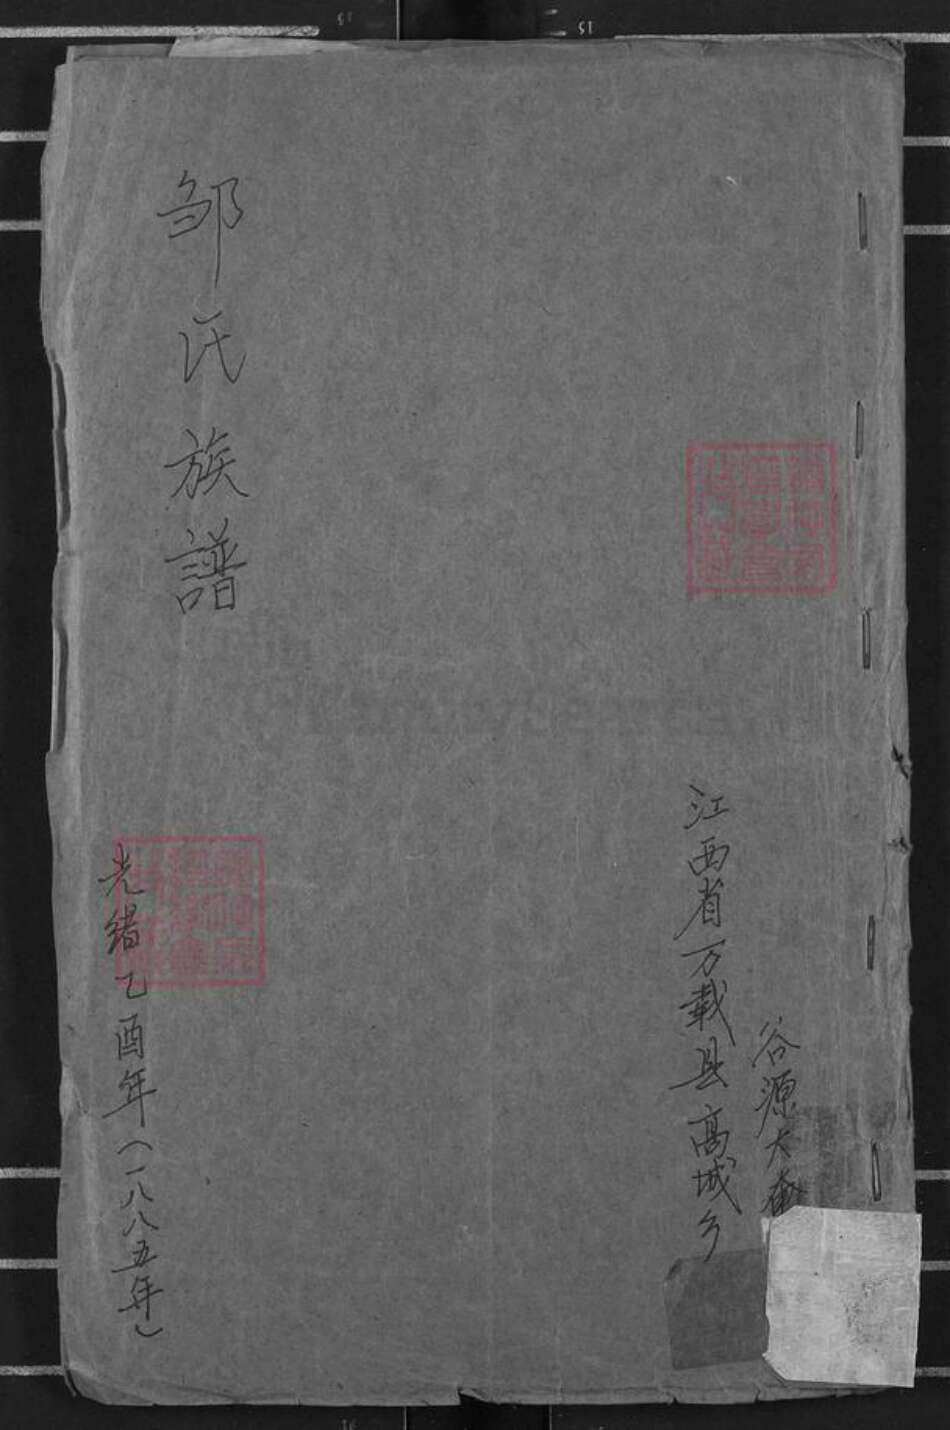 谷源大
江西省万载县高城乡
邹氏族譜
光绪乙酉年(一八八五年)